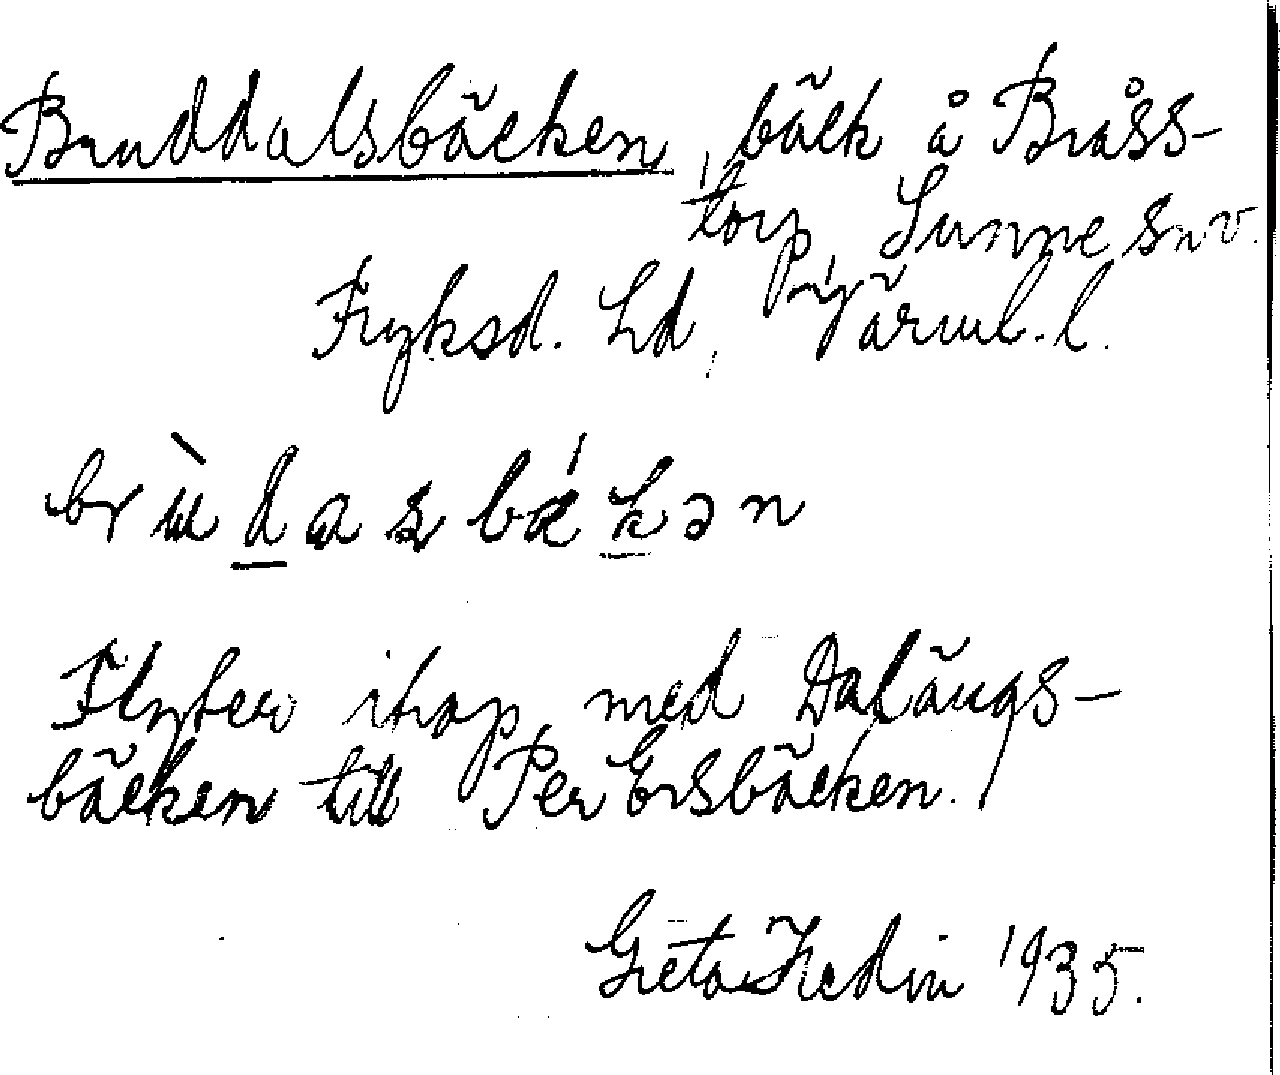 Bruddalsbäcken, bäck å Bråss-
torp, Sunne snv.
Fryksd. hd, Värml. l.
brùdasbǽkən
Flyter ihop med Dalängs-
bäcken till Per Ersbäcken.
Greta Hedin 1935.